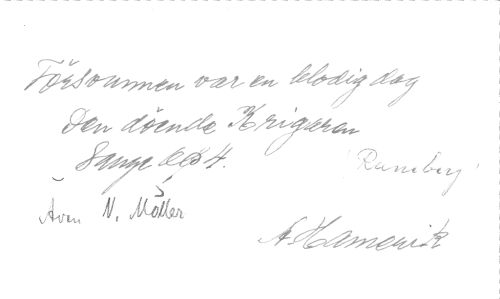 Försvunnen var en blodig dag
Den döende Krigaren
Sange 4.
(Runeberg)
Även N. Möller
A. Hamerik